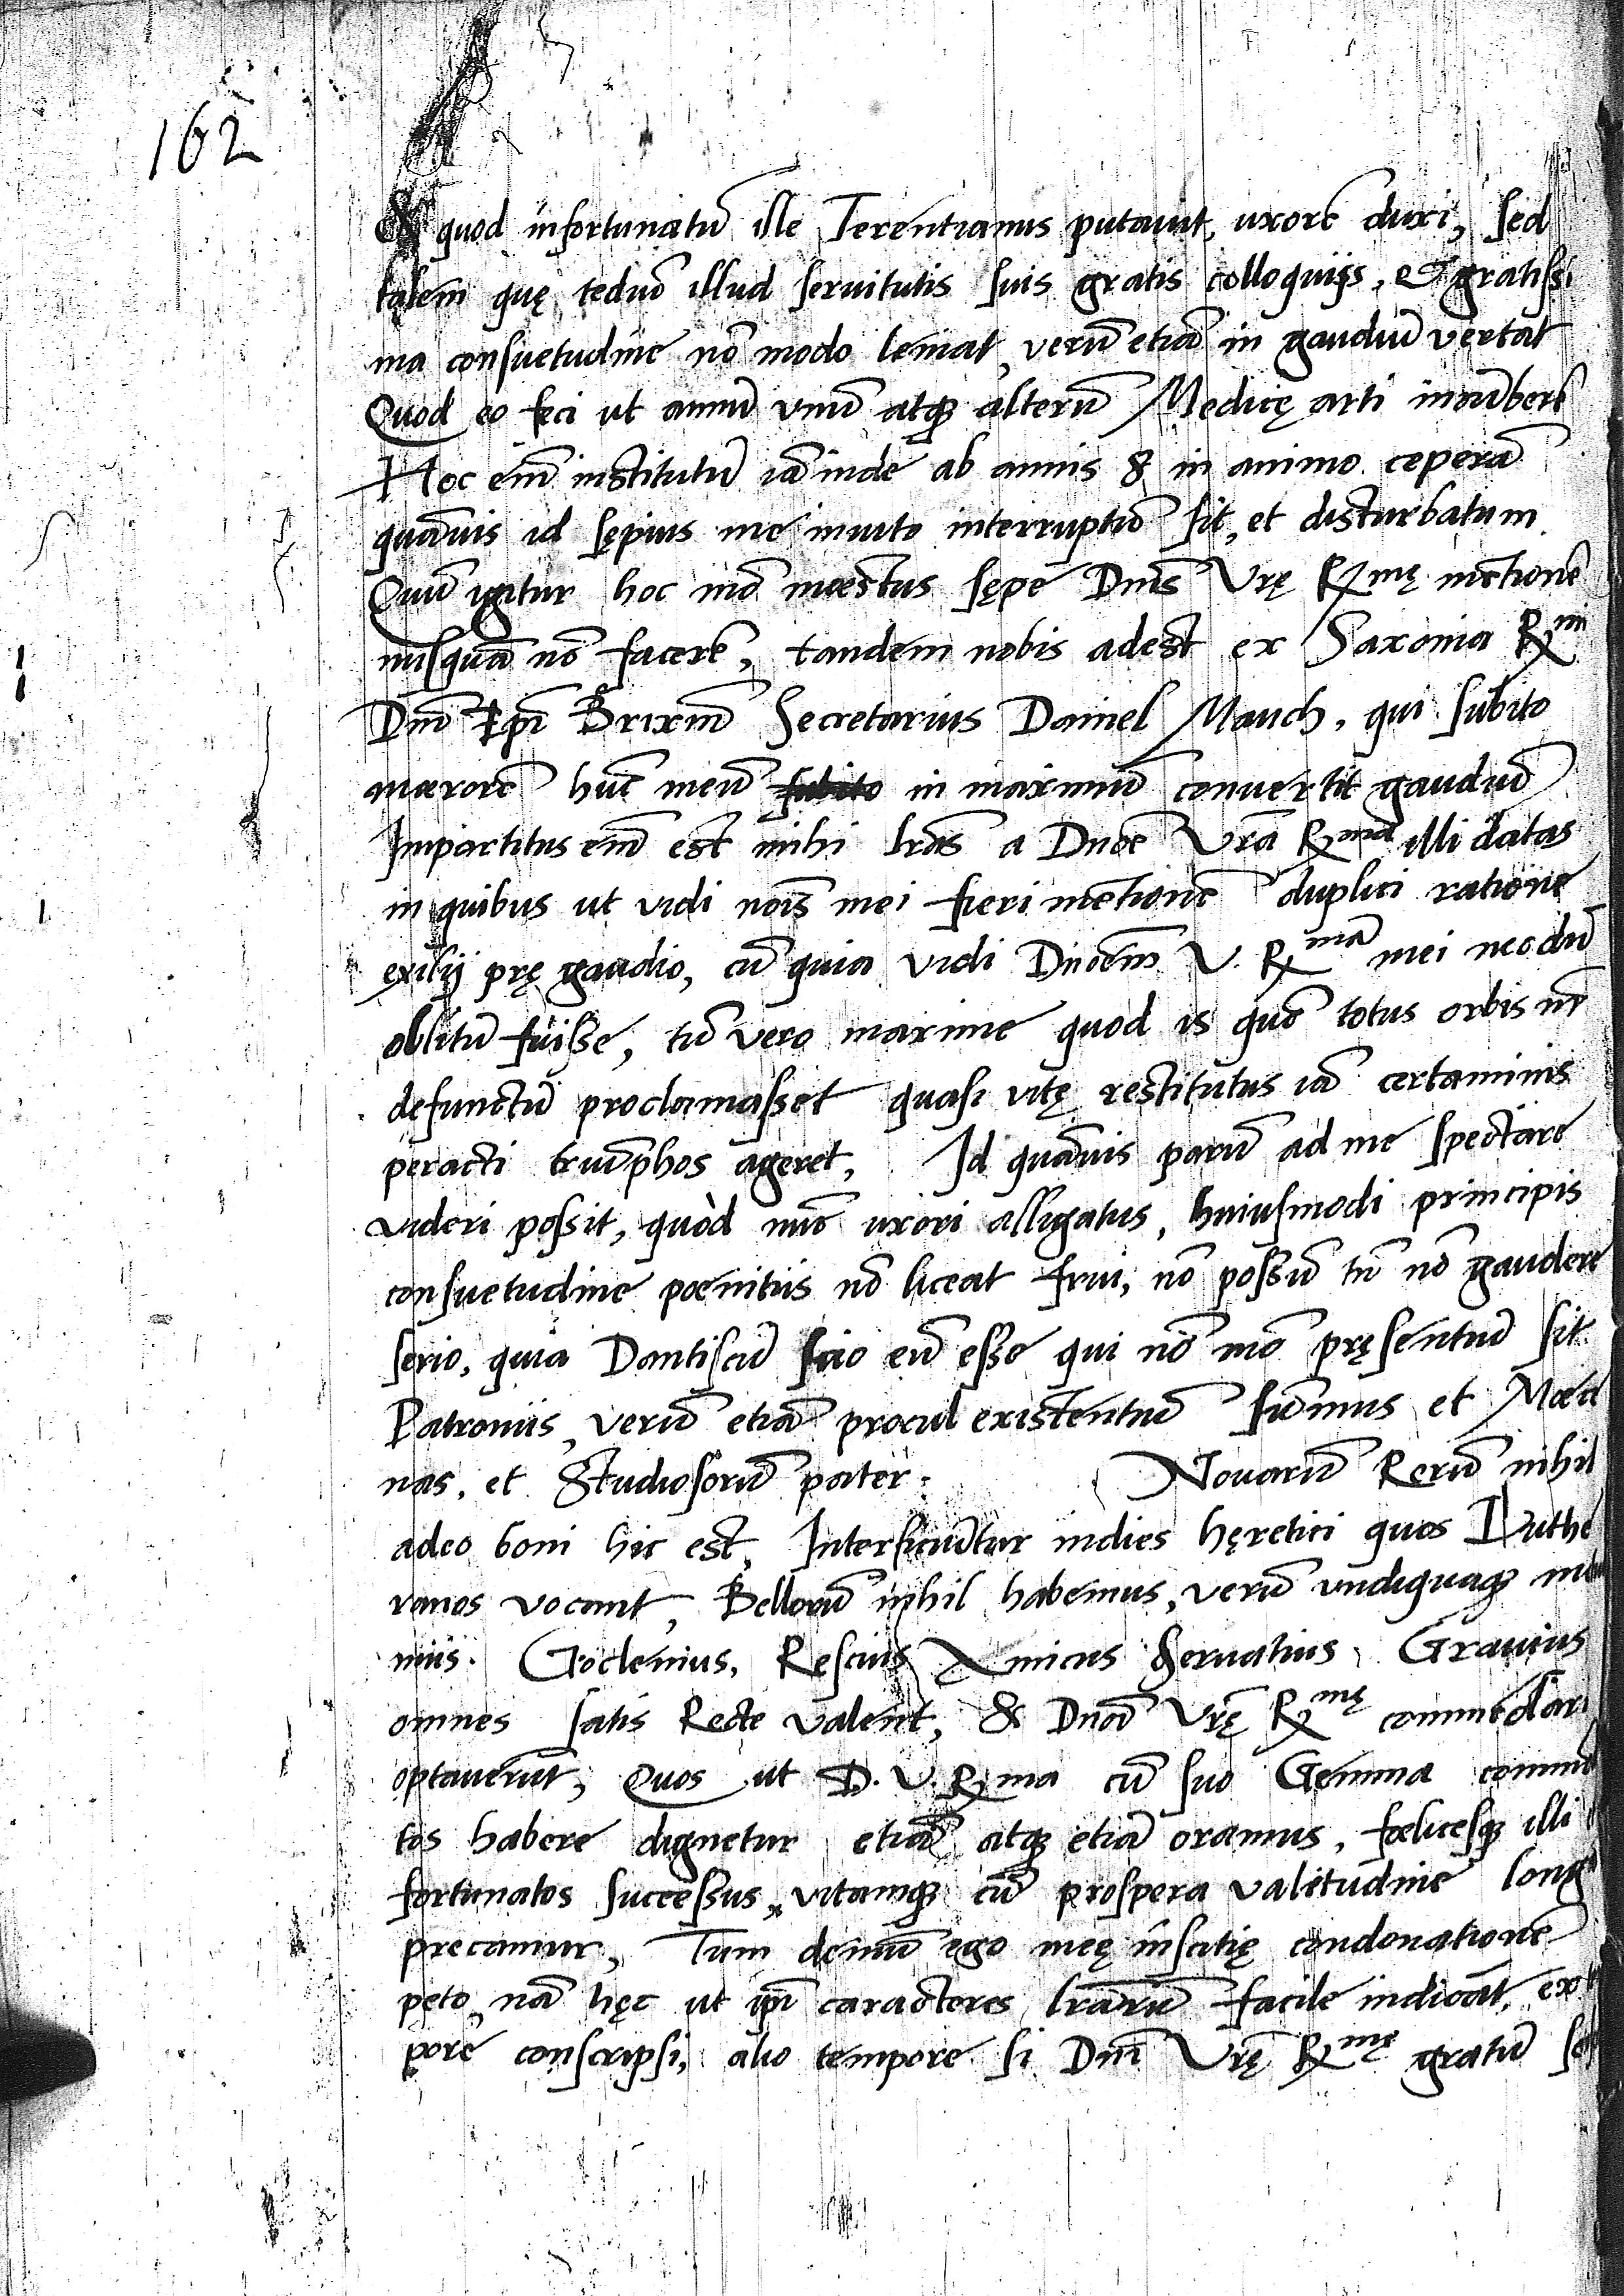 162
& quod infortunatũ ille Terentianus putauit, uxorẽ duxi, sed
talem quę tediũ illud seruitutis suis gratis colloquijs, et gratissi
ma consuetudine nõ modo leniat, verũ etiã in gaudiũ vertat
Quod eo feci ut annũ vnũ atq₃ alterũ Medicę arti incũberẽ
Hoc em̃ institutũ iã inde ab annis 8 in animo ceperã
quãuis id sępius me inuito interruptũ sit, et disturbatum
Quũ igitur hoc mõ mœstus sępe Dn̄is Vrę Rmę mẽtionẽ
nusquã nõ facerẽ, tandem nobis adest ex Saxonia R^mi
Dn̄i Ep̄i Brixin̄ Secretarius Daniel Mauch, qui subito
mœrorẽ hũc meũ subito in maximũ conuertit gaudiũ
Impartitus em̃ est mihi lr̃as a Dn̄oẽ Vr̃a R^ma illi datas
in quibus ut vidi nõis mei fieri mẽtionẽ duplici ratione
exilij prę gaudio, cũ quia vidi Dn̄oẽm V. R^mã mei necdũ
oblitũ fuisse, tũ vero maxime quod is quẽ totus orbis nõ
defunctũ proclamasset quasi vitę restitutus iã certaminis
peracti triũphos ageret, Id quãuis parũ ad me spectare
videri possit, quòd nũc uxori alligatus, huiusmodi principis
consuetudine pœnitius nõ liceat frui, nõ possũ tñ nõ gaudere
serio, quia Dantiscũ scio eũ esse qui nõ mõ pręsentiũ sit
Patronus, verũ etiã procul existentiũ sũmus et Mœcę
nas, et Studiosorũ pater. Nouarũ Rerũ nihil
adeo boni hic est, Interficiũtur indies hęretici quos Luthe
ranos vocant, Bellorũ nihil habemus, verũ vndiquaq₃
mus. Goclenius, Rescius Amicus Seruatius, Grauius
omnes satis Recte valent, & Dn̄oi Vrę R^mę commẽdari
optauerũt, Quos ut D. V. Rma cũ suo Gemma commẽda
tos habere dignetur etiã atq₃ etiã oramus, fœlicesq₃ illi
fortunatos successus, vitamq₃ cũ prospera valitudine longã
precamur, Tum demũ ego meę inscitię condonationẽ
peto, nã hęc ut ip̄i caracteres lr̃arũ facile indicãt, ex tẽ
pore conscripsi, alio tempore si Dn̄i Vrę R^mę gratũ